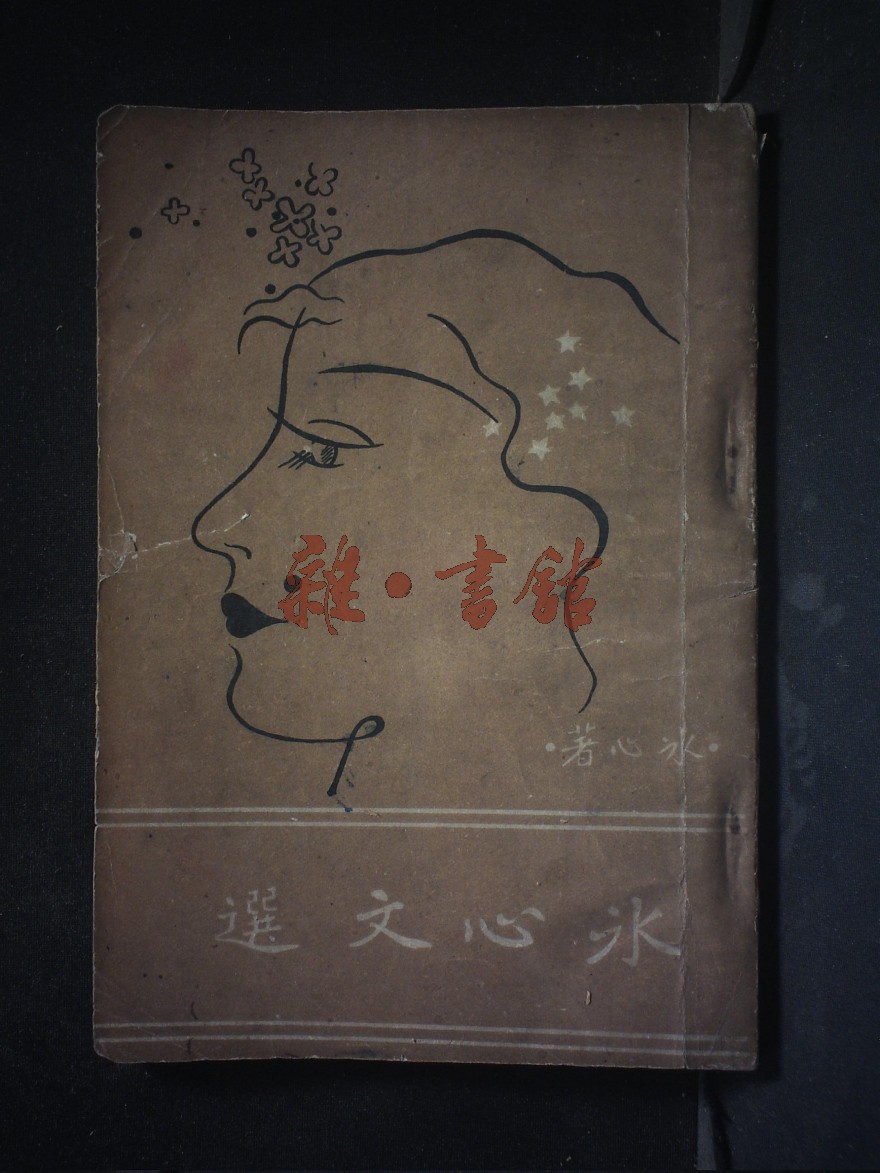 雜·書館
·冰心著·
冰心文選